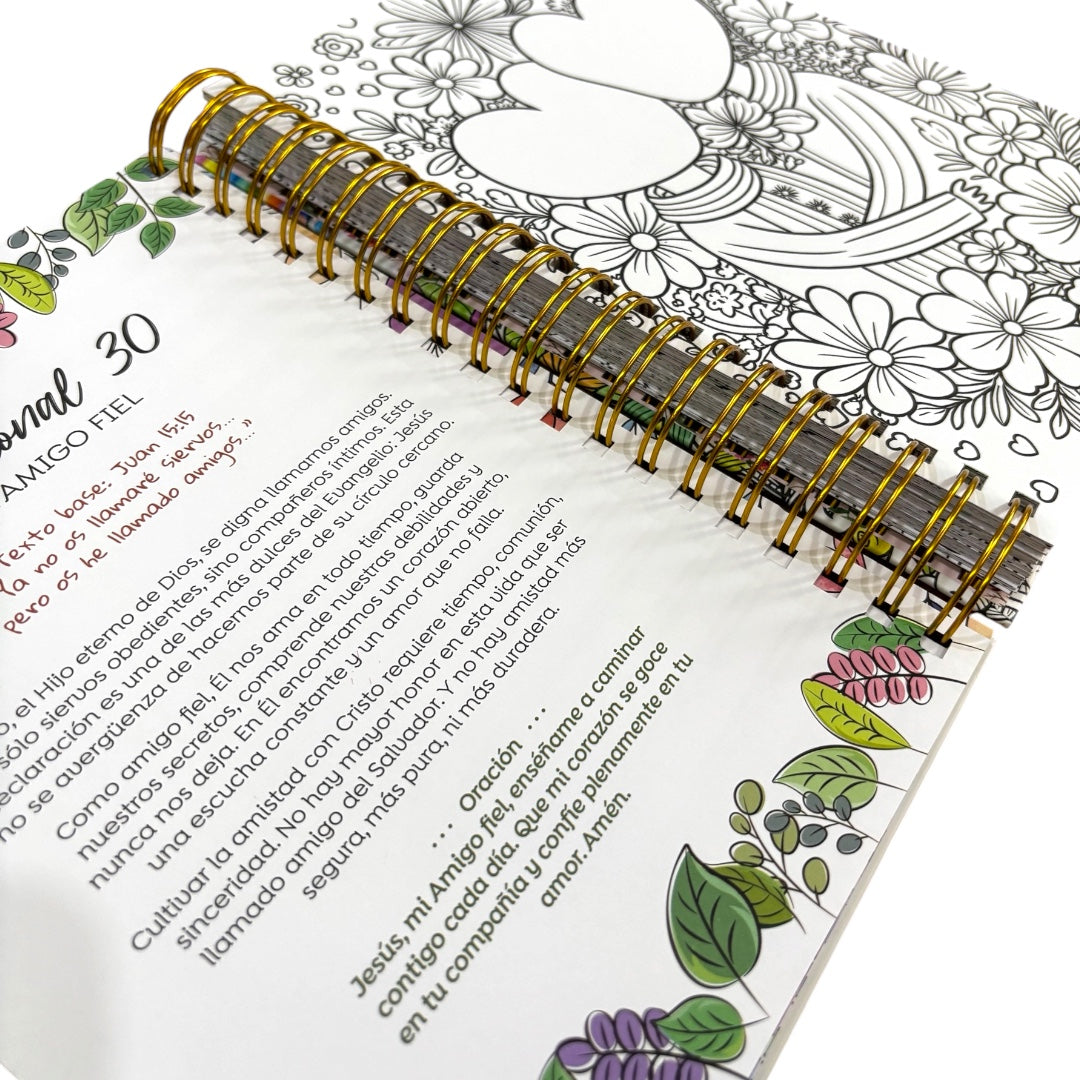 onal 30
AMIGO FIEL
Texto base: Juan 15:15
Ya no os llamaré siervos...
pero os he llamado amigos...»
o, el Hijo eterno de Dios, se digna llamarnos amigos.
sólo siervos obedientes, sino compañeros íntimos. Esta
eclaración es una de las más dulces del Evangelio: Jesús
no se avergüenza de hacernos parte de su círculo cercano.
Como amigo fiel, Él nos ama en todo tiempo, guarda
nuestros secretos, comprende nuestras debilidades y
nunca nos deja. En Él encontramos un corazón abierto,
una escucha constante y un amor que no falla.
Cultivar la amistad con Cristo requiere tiempo, comunión,
sinceridad. No hay mayor honor en esta vida que ser
llamado amigo del Salvador. Y no hay amistad más
segura, más pura, ni más duradera.
... Oración ...
Jesús, mi Amigo fiel, enséñame a caminar
contigo cada día. Que mi corazón se goce
en tu compañía y confíe plenamente en tu
amor. Amén.